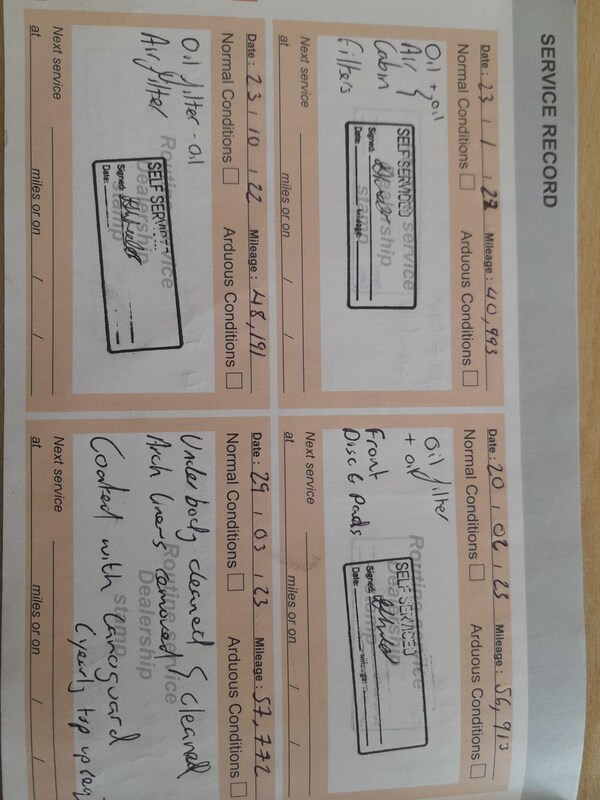 SERVICE RECORD
Date: 23 / 1 / 22 Mileage: 40,993
Normal Conditions Arduous Conditions
Oil + oil
Air &
Cabin
Filters
Routine service
Dealership
stamp
SELF SERVICED
Signed:
Date: Mileage:
Next service
at miles or on / /
Date: 20 / 02 / 23 Mileage: 56,913
Normal Conditions Arduous Conditions
Oil filter
+ oil
Front
Disc & Pads
Routine service
Dealership
stamp
SELF SERVICED
Signed:
Date:
Next service
at miles or on / /
Date: 23 / 10 / 22 Mileage: 48,191
Normal Conditions Arduous Conditions
Oil filter - oil
Air filter
Routine service
Dealership
stamp
SELF SERVICED
Signed:
Date:
Next service
at miles or on / /
Date: 29 / 03 / 23 Mileage: 57,772
Normal Conditions Arduous Conditions
Underbody cleaned & cleaned
Arch liners removed
Coated with Lanoguard
(yearly top up req
Routine service
Dealership
stamp
Next service
at miles or on / /